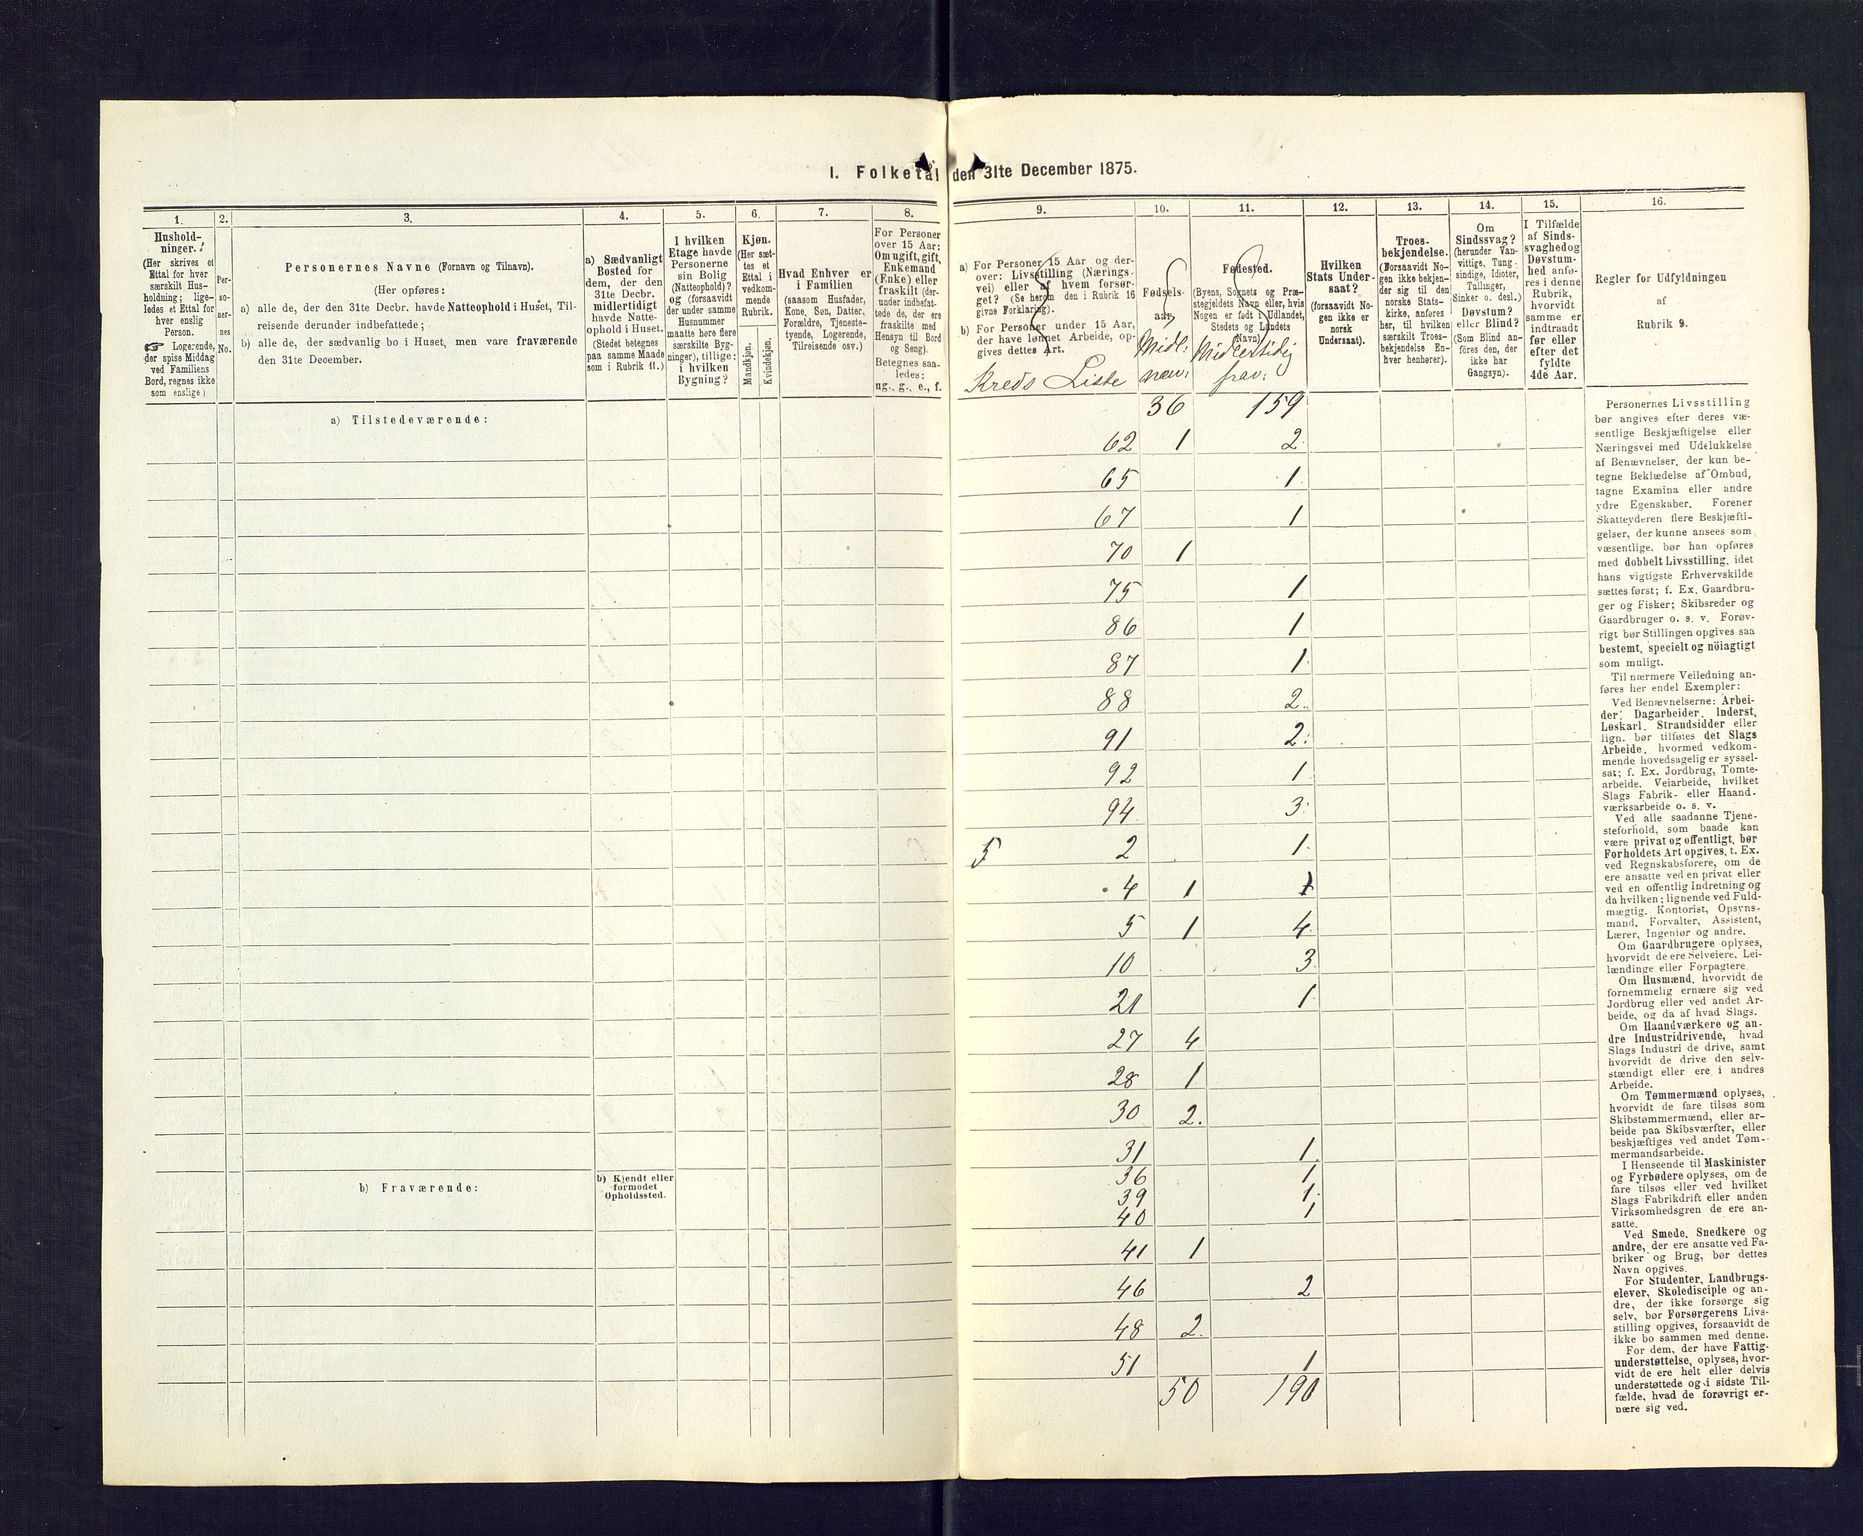 1. Folketal den 31te December 1875.
1.
Hushold-
ninger.
(Her skrives et
Ettal for hver
særskilt Hus-
holdning; lige-
ledes et Ettal for
hver enslig
Person.
☞ Logerende,
der spise Middag
ved Familiens
Bord, regnes ikke
som enslige)
2.
Per-
so-
ner-
nes
No.
3.
Personernes Navne (Fornavn og Tilnavn).
(Her opføres:
a) alle de, der den 31te Decbr. havde Natteophold i Huset, Til-
reisende derunder indbefattede;
b) alle de, der sædvanlig bo i Huset, men vare fraværende
den 31te December.
4.
a) Sædvanligt
Bosted for
dem, der den
31te Decbr.
midlertidigt
havde Natte-
ophold i Huset.
(Stedet betegnes
paa samme Maade
som i Rubrik 11.)
5.
I hvilken
Etage havde
Personerne
sin Bolig
(Natteophold)?
og (forsaavidt
der under samme
Husnummer
maatte høre flere
særskilte Byg-
ninger), tillige:
i hvilken
Bygning?
6.
Kjøn.
(Her sæt-
tes et
Ettal i
vedkom-
mende
Rubrik.
Mandkjøn.
Kvindekjøn.
7.
Hvad Enhver er
i Familien
(saasom Husfader,
Kone, Søn, Datter,
Forældre, Tjeneste-
tyende, Logerende,
Tilreisende osv.)
8.
For Personer
over 15 Aar:
Om ugift, gift,
Enkemand
(Enke) eller
fraskilt (der-
under indbefat-
tede de, der ere
fraskilte med
Hensyn til Bord
og Seng).
Betegnes saa-
ledes:
ug., g., e., f.
9.
a) For Personer 15 Aar og der-
over: Livsstilling (Nærings-
vei) eller af hvem forsør-
get? (Se herom den i Rubrik 16
givne Forklaring).
b) For Personer under 15 Aar,
der have lønnet Arbeide, op-
gives dettes Art.
Kreds Liste
10.
Fødsels-
aar.
Midl:
nær:
11.
Fødested.
(Byens, Sognets og Præ-
stegjeldets Navn eller, hvis
Nogen er født i Udlandet,
Stedets og Landets
Navn)
Midlertidig
frav:
12.
Hvilken
Stats Under-
saat?
(forsaavidt No-
gen ikke er
norsk
Undersaat).
13.
Troes-
bekjendelse.
(Forsaavidt No-
gen ikke bekjen-
der sig til den
norske Stats-
kirke, anføres
her, til hvilken
særskilt Troes-
bekjendelse En-
hver henhører).
14.
Om
Sindssvag?
(herunder Van-
vittige, Tung-
sindige, Idioter,
Tullinger,
Sinker o. desl.)
Døvstum?
eller Blind?
(Som Blind an-
føres den, der
ikke har
Gangsyn).
15.
I Tilfælde
af Sinds-
svaghedog
Døvstum-
hed anfø-
res i denne
Rubrik,
hvorvidt
samme er
indtraadt
før eller
efter det
fyldte
4de Aar.
16.
Regler for Udfyldningen
af
Rubrik 9.
a) Tilstedeværende:
36 159
62 1 2
65 1
67 1
70 1
75 1
86 1
87 1
88 2
91 2
92 1
94 3
5 2 1
4 1 1
5 1 4
10 3
21 1
27 4
28 1
30 2
31 1
36 1
39 1
40 1
41 1
46 2
48 2
51 1
50 190
b) Fraværende:
b) Kjendt eller
formodet
Opholdssted.
Personernes Livsstilling
bør angives efter deres væ-
sentlige Beskjæftigelse eller
Næringsvei med Udelukkelse
af Benævnelser, der kun be-
tegne Beklædelse af Ombud,
tagne Examina eller andre
ydre Egenskaber. Forener
Skatteyderen flere Beskjæfti-
gelser, der kunne ansees som
væsentlige, bør han opføres
med dobbelt Livsstilling, idet
hans vigtigste Erhvervskilde
sættes først; f. Ex. Gaardbru-
ger og Fisker; Skibsreder og
Gaardbruger o. s. v. Forøv-
rigt bør Stillingen opgives saa
bestemt, specielt og nøiagtigt
som muligt.
Til nærmere Veiledning an-
føres her endel Exempler:
Ved Benævnelserne: Arbei-
der, Dagarbeider, Inderst,
Løskarl, Strandsidder eller
lign. bør tilføies det Slags
Arbeide, hvormed vedkom-
mende hovedsagelig er syssel-
sat; f. Ex. Jordbrug, Tomte-
arbeide, Veiarbeide, hvilket
Slags Fabrik- eller Haand-
værksarbeide o. s. v.
Ved alle saadanne Tjene-
steforhold, som baade kan
være privat og offentligt, bør
Forholdets Art opgives, t. Ex.
ved Regnskabsførere, om de
ere ansatte ved en privat eller
ved en offentlig Indretning og
da hvilken; lignende ved Fuld-
mægtig, Kontorist, Opsyns-
mand, Forvalter, Assistent,
Lærer, Ingeniør og andre.
Om Gaardbrugere oplyses,
hvorvidt de ere Selveiere, Lei-
lændinge eller Forpagtere.
Om Husmænd, hvorvidt de
fornemmelig ernære sig ved
Jordbrug eller ved andet Ar-
beide, og da af hvad Slags.
Om Haandværkere og an-
dre Industridrivende, hvad
Slags Industri de drive, samt
hvorvidt de drive den selv-
stændigt eller ere i andres
Arbeide.
Om Tømmermænd oplyses,
hvorvidt de fare tilsøs som
Skibstømmermænd, eller ar-
beide paa Skibsværfter, eller
beskjæftiges ved andet Tøm-
mermandsarbeide.
I Henseende til Maskinister
og Fyrbødere oplyses, om de
fare tilsøs eller ved hvilket
Slags Fabrikdrift eller anden
Virksomhedsgren de ere an-
satte.
Ved Smede, Snedkere og
andre, der ere ansatte ved Fa-
briker og Brug, bør dettes
Navn opgives.
For Studenter, Landbrugs-
elever, Skoledisciple og an-
dre, der ikke forsørge sig
selv, bør Forsørgerens Livs-
stilling opgives, forsaavidt de
ikke bo sammen med denne.
For dem, der have Fattig-
understøttelse, oplyses, hvor-
vidt de ere helt eller delvis
understøttede og i sidste Til-
fælde, hvad de forøvrigt er-
nære sig ved.